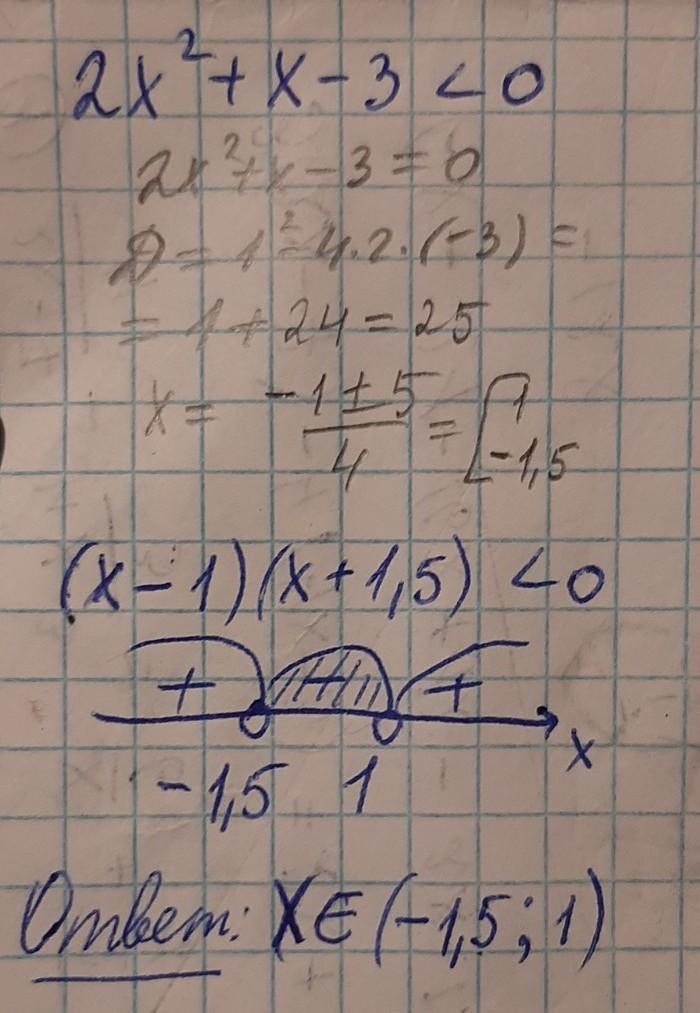 2x² + x - 3 < 0
2x² + x - 3 = 0
D = 1² - 4·2·(-3) =
= 1 + 24 = 25
x = (-1 ± 5)/4 = [1
-1,5
(x - 1)(x + 1,5) < 0
+ - +
-1,5 1 x
Ответ: X ∈ (-1,5; 1)